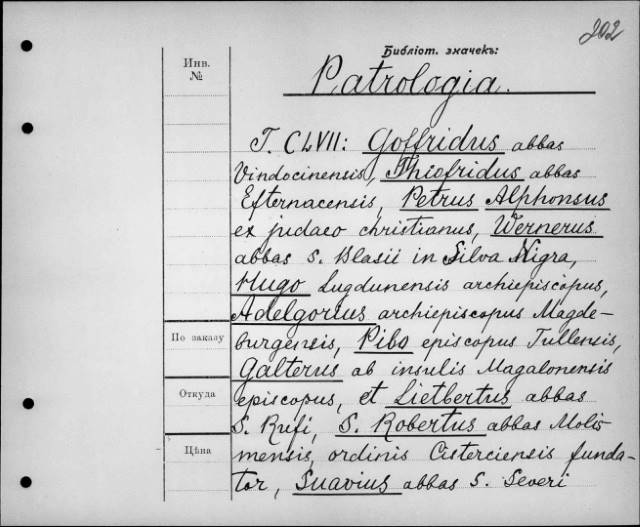 202
Библіот. значекъ:
Инв. №
Patrologia.
T. CLVII: Goffridus abbas
Vindocinensis, Thiofridus abbas
Efternacensis, Petrus Alphonsus
ex judaeo christianus, Wernerus
abbas S. Blasii in Silva Nigra,
Hugo Lugdunensis archiepiscopus,
Adelgorius archiepiscopus Magde-
По заказу
burgensis, Pibo episcopus Tullensis,
Galterus ab insulis Magalonensis
Откуда
episcopus, et Lietbertus abbas
S. Rufi, S. Robertus abbas Molis
Цѣна
mensis, ordinis Cisterciensis funda-
tor, Suavius abbas S. Severi